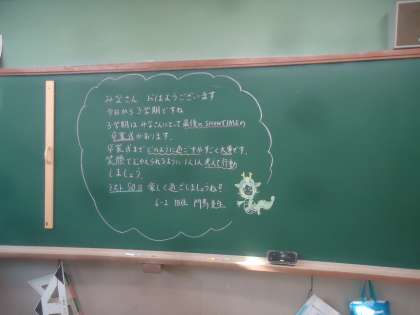 みなさん おはようございます
今日から3学期ですね
3学期はみなさんにとって最後のSHOWTIMEの
卒業式があります。
卒業式までどのように過ごすかすごく大事です。
笑顔でむかえられるように1人1人考えて行動
しましょう。
残り50日 楽しく過ごしましょうね!!
6-2 担任